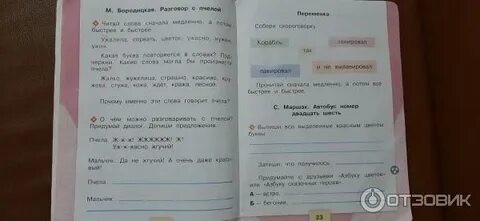 М. Бородицкая. Разговор с пчелой
Читай слова сначала медленно, а потом
быстрее и быстрее.
Ужалила, сорвать, цветок, ужасно, нужен,
Какая буква повторяется в словах? Под-
черкни. Какие слова могла бы произнести
пчела?
Жалко, жужелица, страшно, красиво, кру-
жева, скука, кожа, ждёт, кража, лесной.
Почему именно эти слова говорит пчела?
О чём можно разговаривать с пчелой?
Придумай диалог. Допиши предложения.
Пчела. Ж-ж-ж! ЖЖЖЖЖЖ! Ж!
Уж-ж-жасно жгучий!
Мальчик. Да не жгучий! А очень даже краси-
вый!
Пчела.
Мальчик.
Переменка
Собери скороговорку.
Корабль
лавировал
так
лавировал
и не вылавировал
Прочитай сначала медленно, а потом всё
быстрее и быстрее.
С. Маршак. Автобус номер
двадцать шесть
Выпиши все выделенные красным цветом
буквы.
Запиши, что получилось.
Придумайте с друзьями «Азбуку цветов»
или «Азбуку сказочных героев».
А — астра,
Б — бегония,
23
ОТЗОВИК